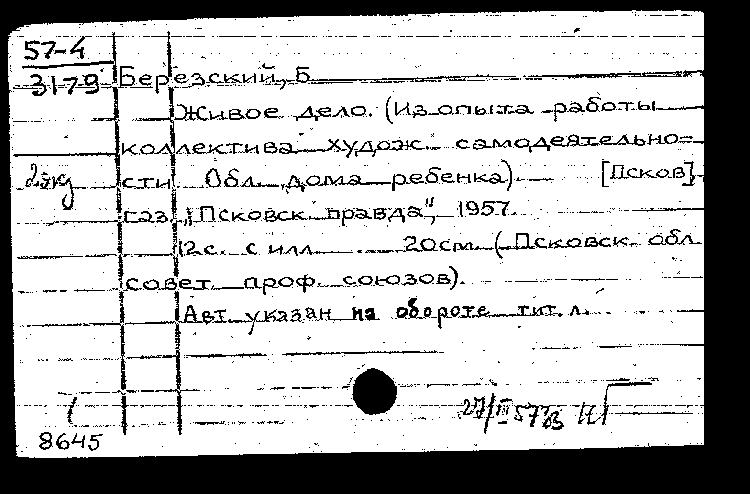 57-4
3179 Березский, Б.
Живое дело. (Из опыта работы
коллектива худож. самодеятельно=
2 экз сти Обл. дома ребенка). — [Псков],
газ. „Псковск. правда", 1957.
12 с. с илл. 20 см. (Псковск. обл.
совет проф. союзов).
Авт. указан на обороте тит. л.
27/III 57
8645